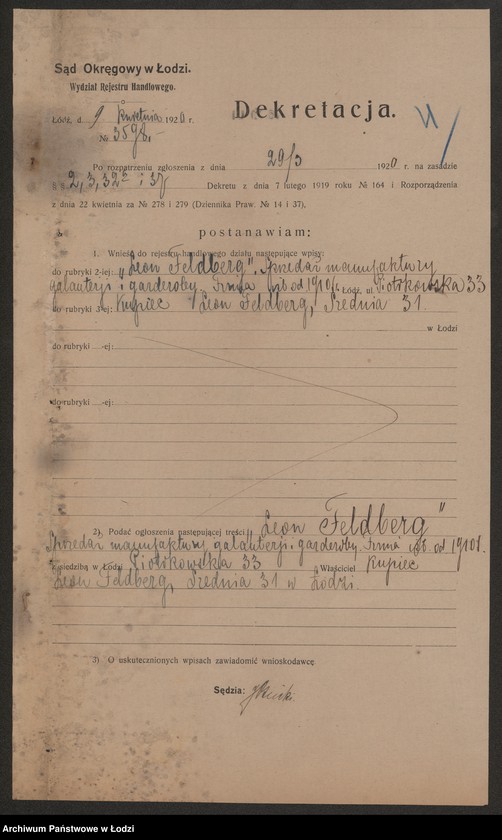 Sąd Okręgowy w Łodzi.
Wydział Rejestru Handlowego.
Łódź, d. 9 kwietnia 1920 r.
№ 3598
Dekretacja.
Po rozpatrzeniu zgłoszenia z dnia 29/3 1920 r. na zasadzie
2, 3, 32 i 37 Dekretu z dnia 7 lutego 1919 roku № 164 i Rozporządzenia
z dnia 22 kwietnia za № 278 i 279 (Dziennika Praw. № 14 i 37),
postanawiam:
1. Wnieść do rejestru handlowego działu następujące wpisy:
do rubryki 2-iej: „Leon Feldberg”. Sprzedaż manufaktury
galanterji i garderoby. Firma od 1910 r. Łódź, ul. Piotrkowska 33
do rubryki 3-ej: Kupiec Leon Feldberg, Średnia 31.
w Łodzi
do rubryki ....-ej:
do rubryki ....-ej:
2). Podać ogłoszenia następującej treści: „Leon Feldberg”
Sprzedaż manufaktury galanterji i garderoby. Firma od 1910 r.
siedzibą w Łodzi Piotrkowska 33 Właściciel Kupiec
Leon Feldberg, Średnia 31 w Łodzi.
3) O uskutecznionych wpisach zawiadomić wnioskodawcę
Sędzia:
Archiwum Państwowe w Łodzi